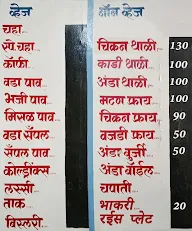 व्हेज
चहा
स्पे.चहा
कॉफी
वडा पाव
भजी पाव
मिसळ पाव
वडा सँपल
सँपल पाव
कोल्ड्रींक्स
लस्सी
ताक
बिस्लरी
नॉन व्हेज
चिकन थाळी 130
काडी थाळी 100
अंडा थाळी 100
मटण फ्राय 100
चिकन फ्राय 90
वजडी फ्राय 50
अंडा बुर्जी 50
अंडा बॉईल
चपाती
भाकरी 20
राईस प्लेट 10